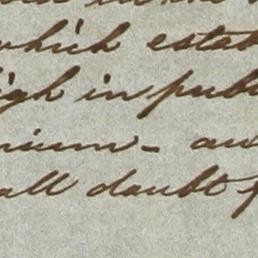 which estab
igh in publ
nium - au
all doubt f